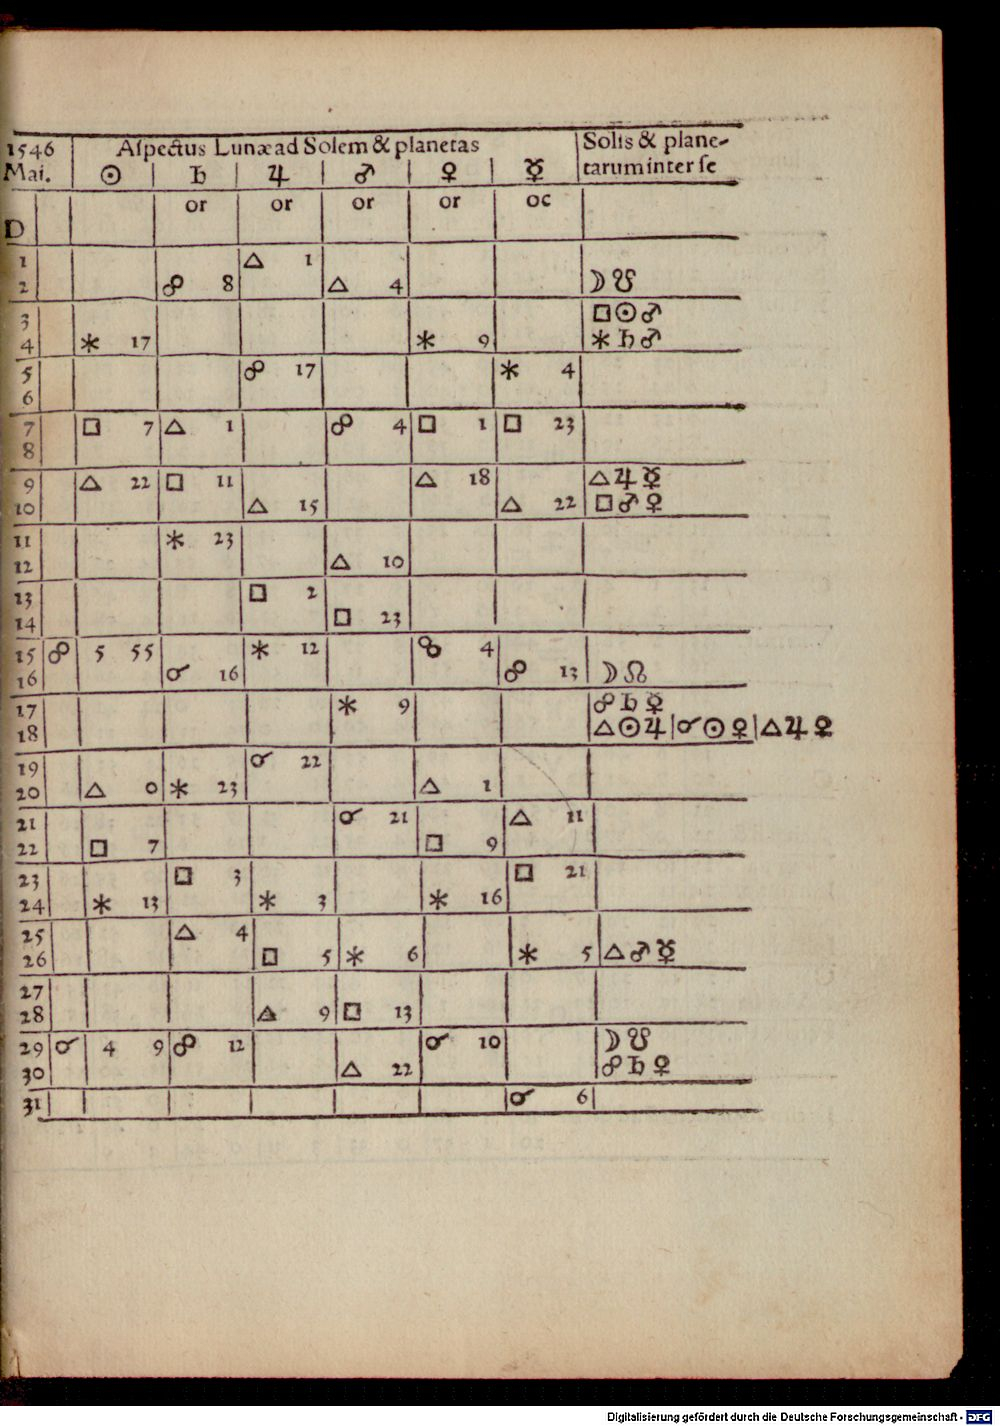 1546 Aſpectus Lunæ ad Solem & planetas Solis & plane-
Mai. ☉ ♄ ♃ ♂ ♀ ☿ tarum inter ſe
or or or or oc
D
1 △ 1
2 ☍ 8 △ 4 ☽ ☋
3 □ ☉ ♂
4 ⚹ 17 ⚹ 9 ⚹ ♄ ♂
5 ☍ 17 ⚹ 4
6
7 □ 7 △ 1 ☍ 4 □ 1 □ 23
8
9 △ 22 □ 11 △ 18 △ ♃ ☿
10 △ 15 △ 22 □ ♂ ♀
11 ⚹ 23
12 △ 10
13 □ 2
14 □ 23
15 ☍ 5 55 ⚹ 12 ☍ 4
16 ☌ 16 ☍ 13 ☽ ☊
17 ⚹ 9 ☍ ♄ ☿
18 △ ☉ ♃ | ☌ ☉ ♀ | △ ♃ ♀
19 ☌ 22
20 △ 0 ⚹ 23 △ 1
21 ☌ 21 △ 11
22 □ 7 □ 9
23 □ 3 □ 21
24 ⚹ 13 ⚹ 3 ⚹ 16
25 △ 4
26 □ 5 ⚹ 6 ⚹ 5 △ ♂ ☿
27
28 △ 9 □ 13
29 ☌ 4 9 ☍ 12 ☌ 10 ☽ ☋
30 △ 22 ☍ ♄ ♀
31 ☌ 6
Digitalisierung gefördert durch die Deutsche Forschungsgemeinschaft - DFG